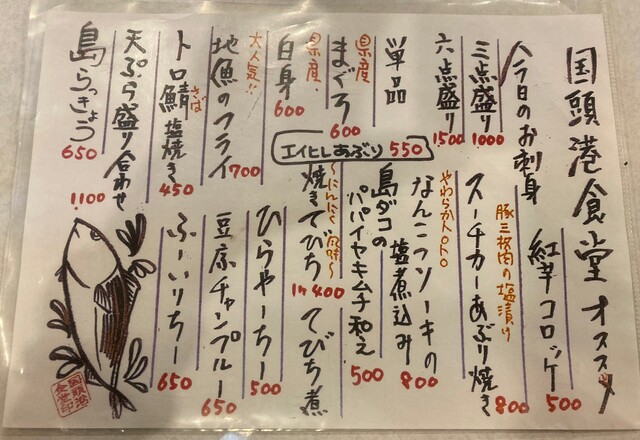 国頭港食堂 オススメ
今日のお刺身
三点盛り 1000
六点盛り 1500
単品
県産 まぐろ 600
県産 白身 600
大人気!! 地魚のフライ 700
トロ鯖塩焼き 450
さば
天ぷら盛り合わせ 1100
島らっきょう 650
エイヒレあぶり 550
紅芋コロッケ 500
豚三枚肉の塩漬け
スーチカーあぶり焼き 800
やわらかトロトロ
なんこつソーキの塩煮込み 800
島ダコの
パパイヤキムチ和え 500
〜にんにく風味〜
焼きてびち 1ヶ400
てびち煮
ひらやーちー 500
豆腐チャンプルー 650
ふーいりちー 650
国頭港食堂印